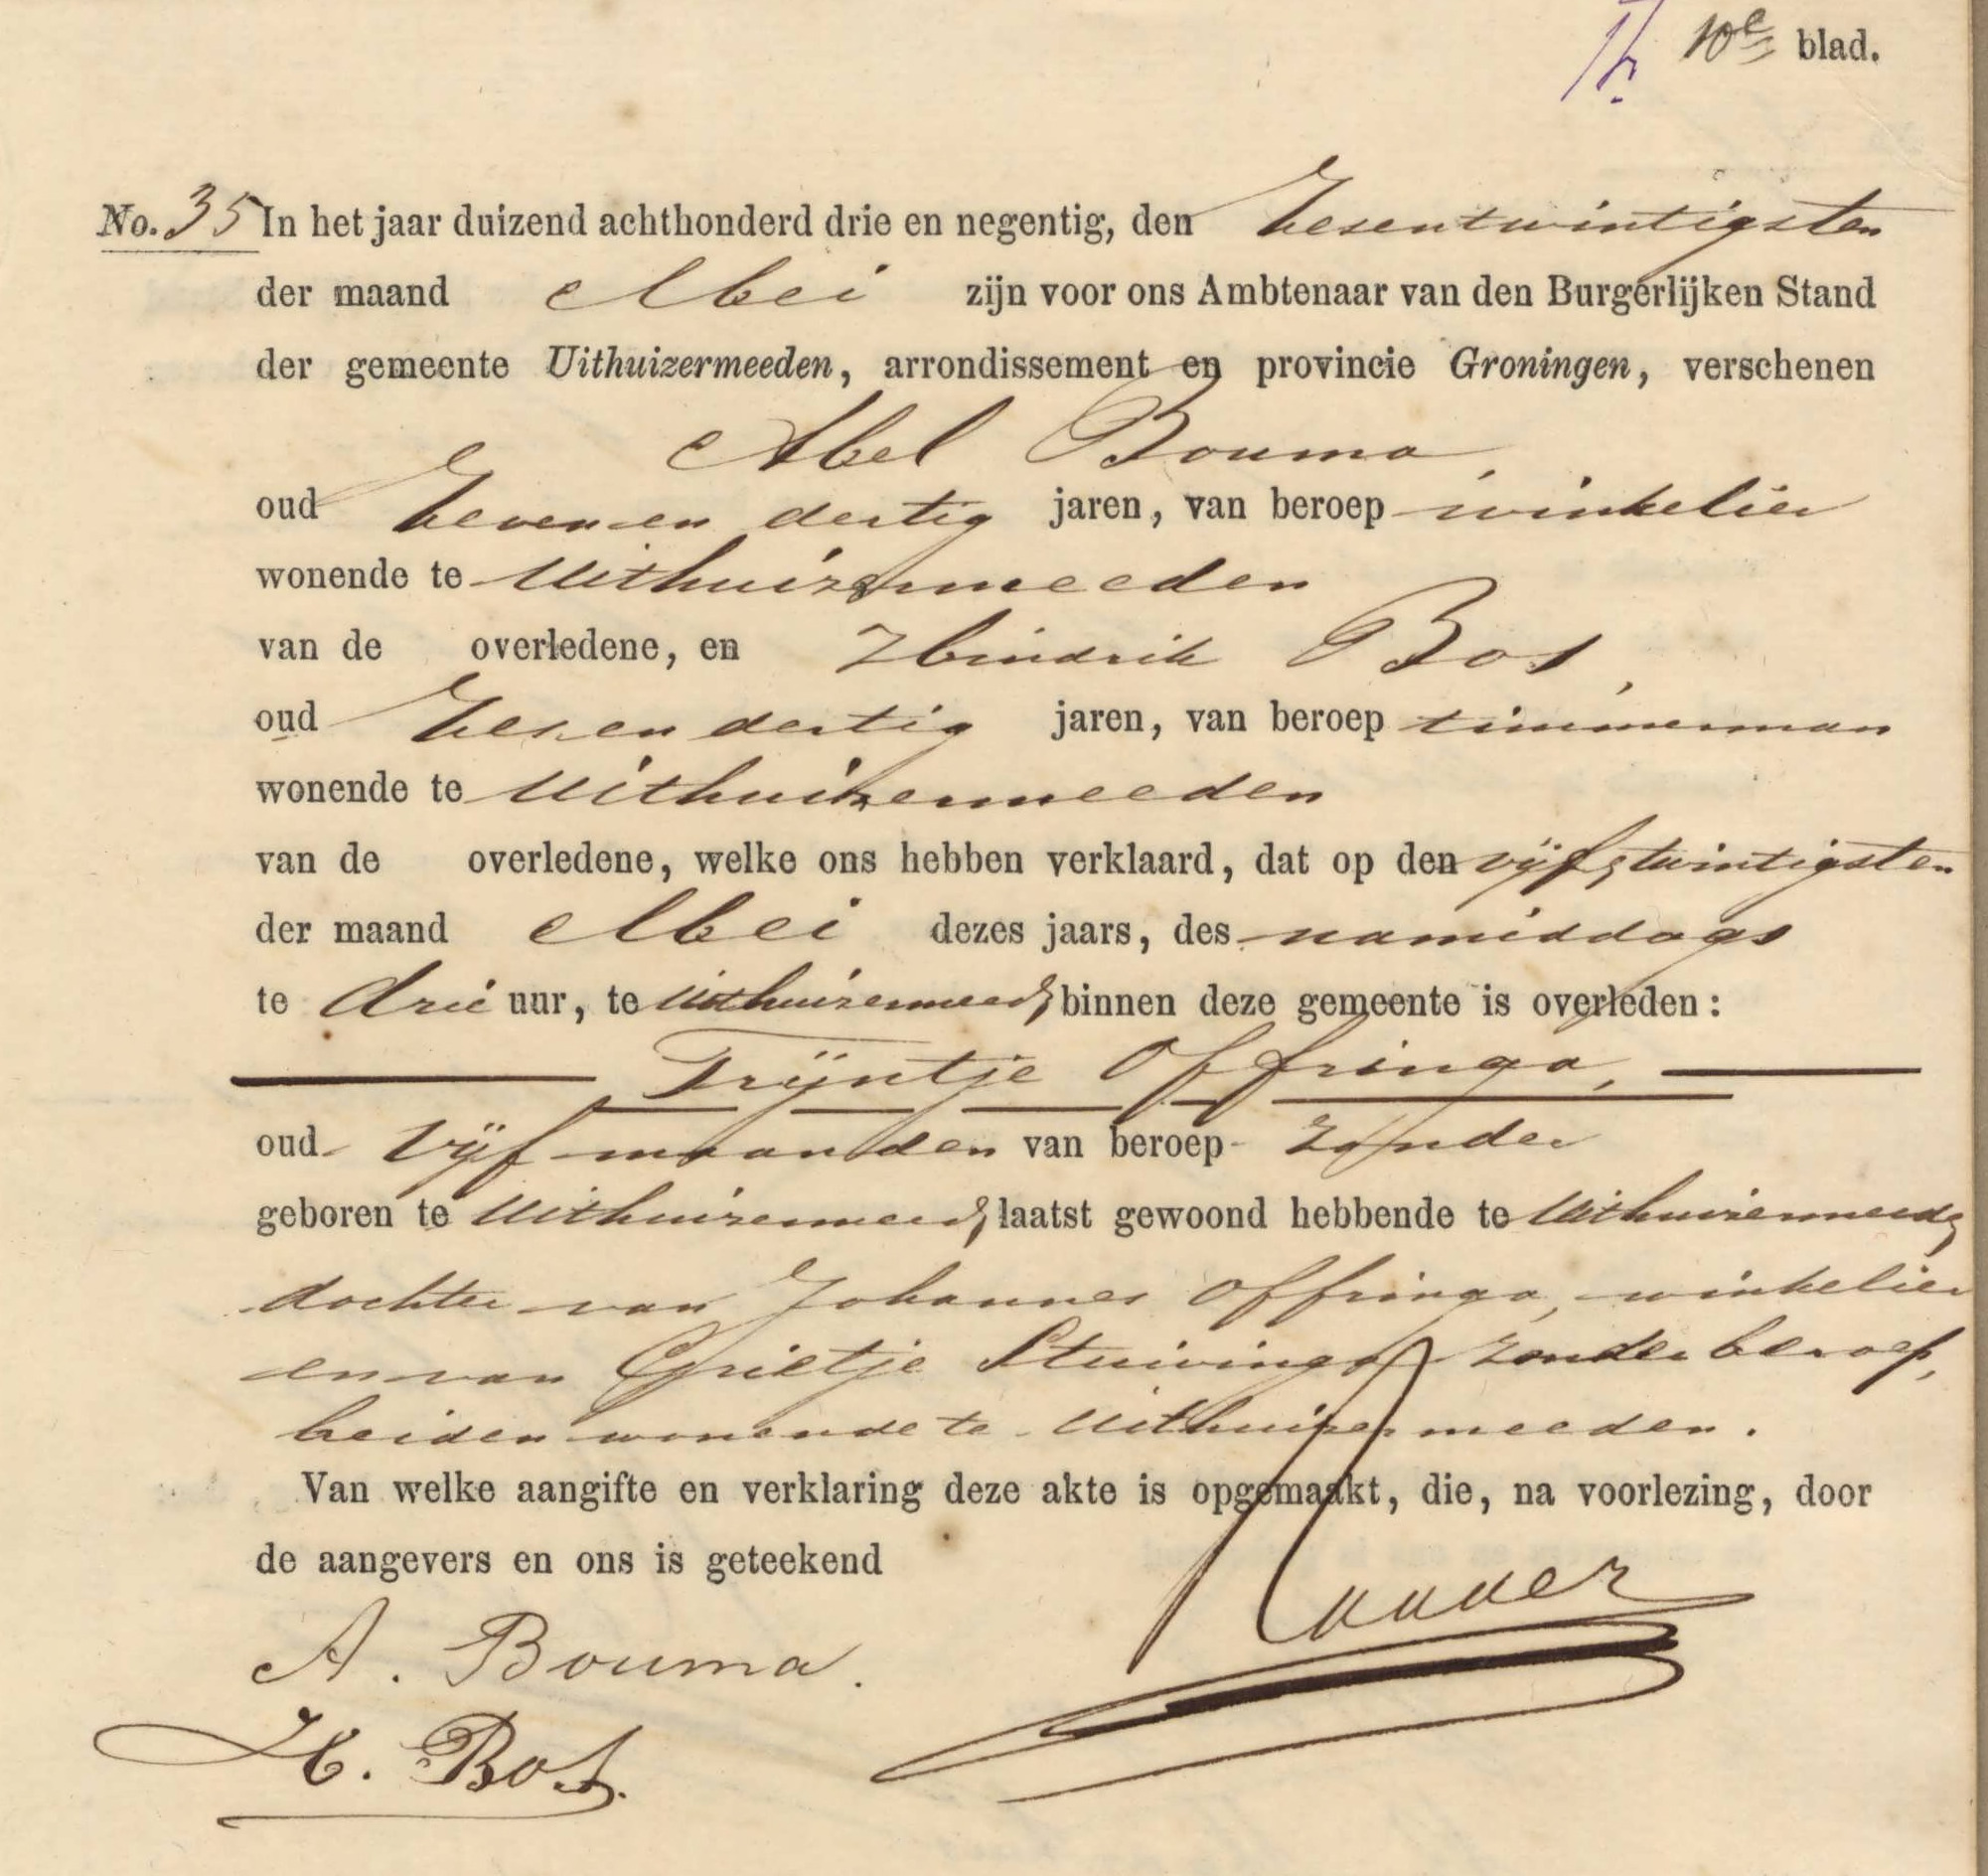 10e blad.
No. 35 In het jaar duizend achthonderd drie en negentig, den Zesentwintigsten
der maand Mei zijn voor ons Ambtenaar van den Burgerlijken Stand
der gemeente Uithuizermeeden, arrondissement en provincie Groningen, verschenen
Abel Bouma,
oud Zevenen dertig jaren, van beroep winkelier
wonende te Uithuizermeeden
van de overledene, en Hindrik Bos,
oud Zesen dertig jaren, van beroep timmerman
wonende te Uithuizermeeden
van de overledene, welke ons hebben verklaard, dat op den vijf & twintigsten
der maand Mei dezes jaars, des namiddags
te drie uur, te Uithuizermeed, binnen deze gemeente is overleden:
Trijntje Offringa,
oud Vijf maanden van beroep zonder
geboren te Uithuizermeed, laatst gewoond hebbende te Uithuizermeed
dochter van Johannes Offringa, winkelier
en van Grietje Stuivinga zonder beroep,
beiden wonende te Uithuizermeeden.
Van welke aangifte en verklaring deze akte is opgemaakt, die, na voorlezing, door
de aangevers en ons is geteekend
A. Bouma.
H. Bos.